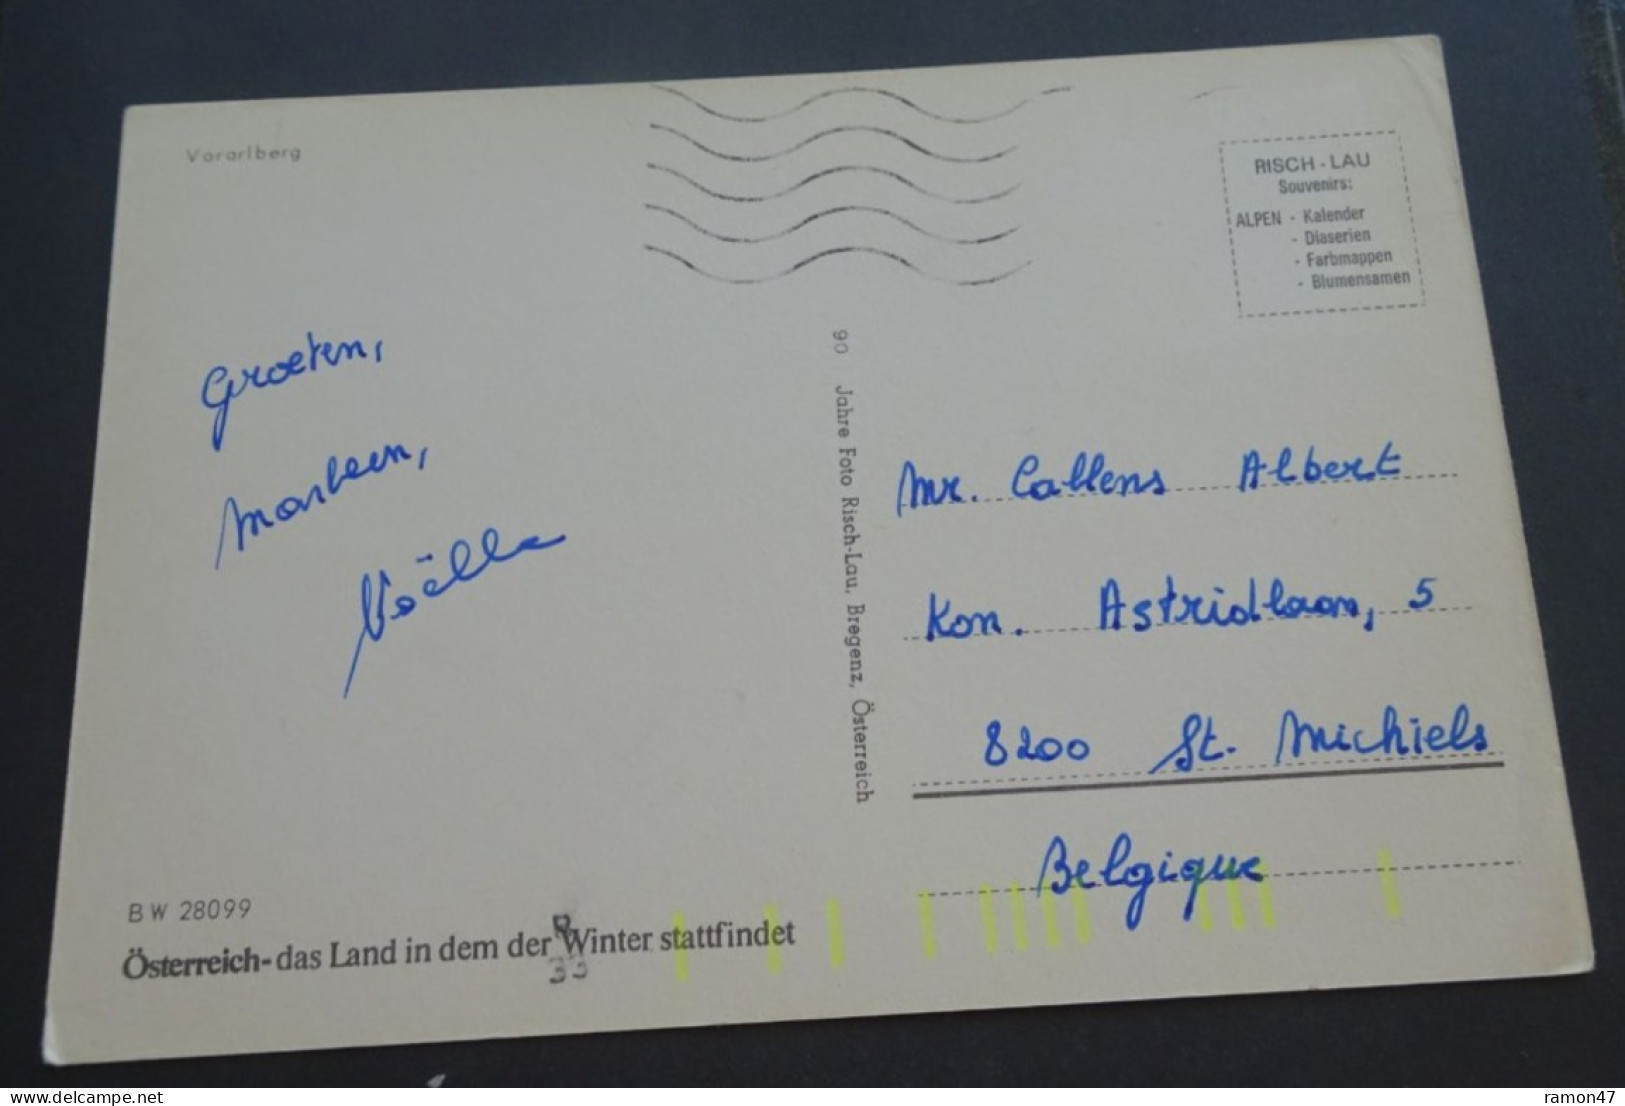 Vorarlberg
RISCH - LAU
Souvenirs:
ALPEN - Kalender
- Diaserien
- Farbmappen
- Blumensamen
Groeten,
Marleen,
Noëlla
90 Jahre Foto Risch-Lau, Bregenz, Österreich
Mr. Callens Albert
Kon. Astridlaan, 5
8200 St. Michiels
Belgique
BW 28099
Österreich-das Land in dem der Winter stattfindet
delcampe.net
ramon47